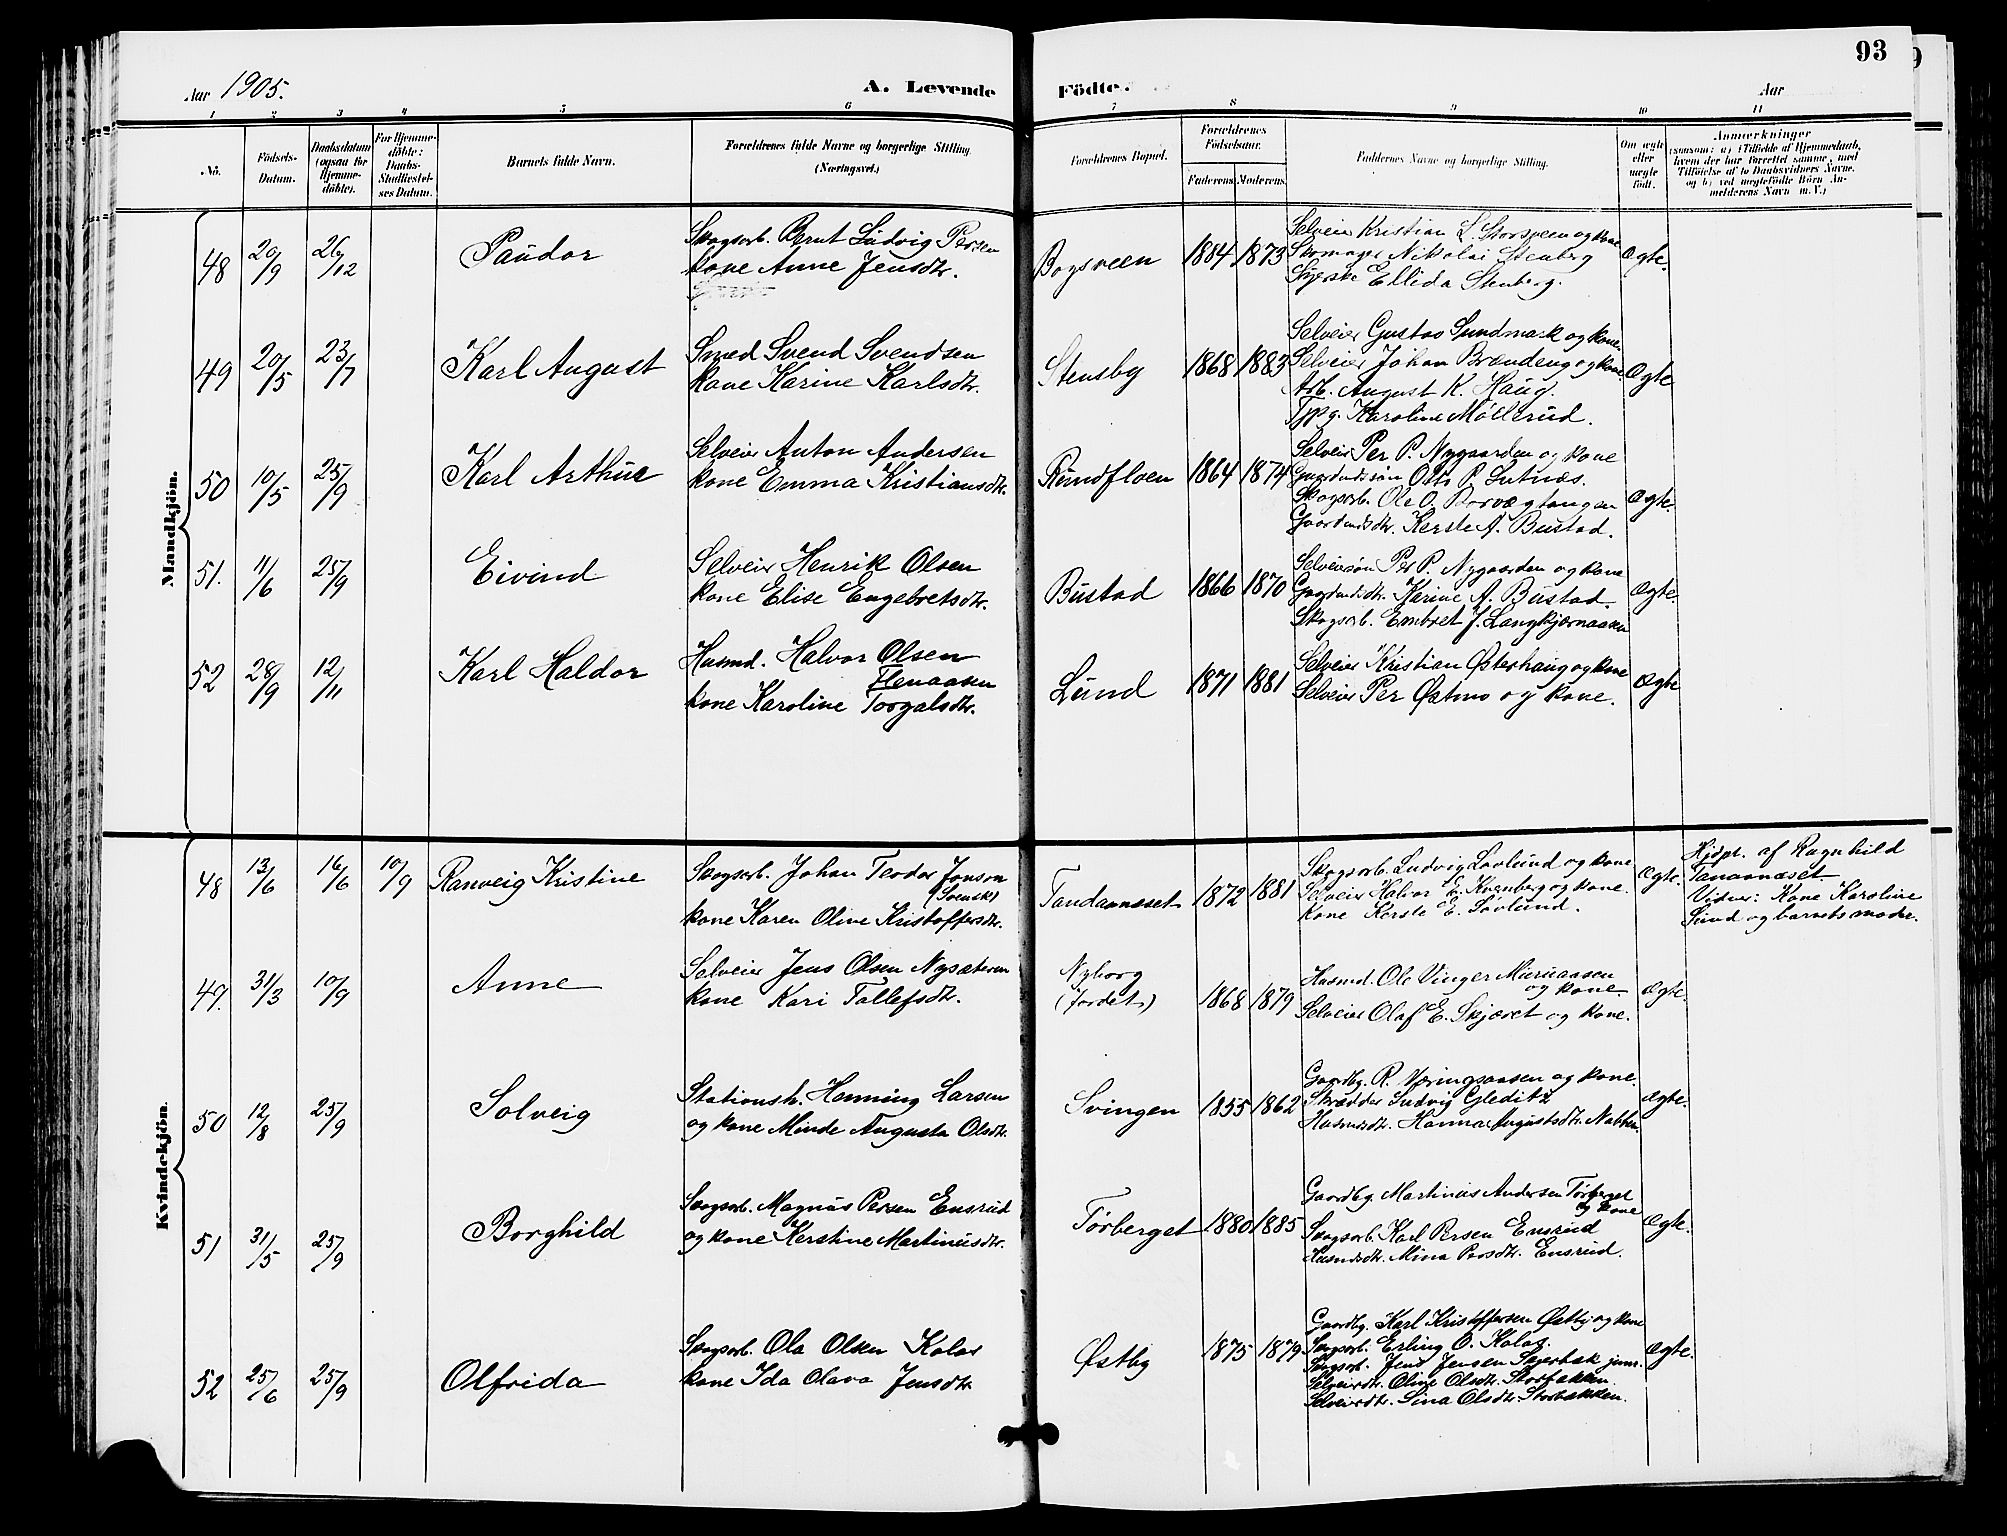 93
Aar 1905.
A. Levende
Födte.
Aar
1 2 3 4 5 6 7 8 9 10 11
No.
Födsels-
Datum.
Daabsdatum
(ogsaa for
Hjemme-
döbte).
For Hjemme-
döbte:
Daabs-
Stadfæstel-
ses Datum.
Barnets fulde Navn.
Forældrenes fulde Navne og borgerlige Stilling
(Næringsvei.)
Forældrenes Bopæl.
Forældrenes
Födselsaar.
Faderens. Moderens.
Faddernes Navne og borgerlige Stilling.
Om ægte
eller
uægte
født.
Anmærkninger
(saasom: a) i Tilfælde af Hjemmedaab,
hvem der har forrettet samme, med
Tilföielse af to Daabsvidners Navne,
og b) ved uægtefödte Börn An-
melderens Navn m. V.)
Mandkjön.
48 20/9 26/12 Paudor
Skogsarb. Bernt Ludvig Persen
kone Anne Jensdtr.
Bogsveen 1884 1873
Selveier Kristian L. Storsveen og kone
Skomager Nikolai Stenberg
Syerske Ellida Stenberg.
Ægte.
49 20/5 23/7 Karl August
Smed Svend Svendsen
kone Karine Karlsdtr.
Stensby 1868 1883
Selveier Gustav Sundmark og kone
Selveier Johan Brændeng og kone
Arb. August K. Haug.
Tjpg. Karoline Möllerud.
Ægte
50 10/5 25/9 Karl Arthur
Selveier Anton Andersen
kone Emma Kristiansdtr.
Rundfloen 1864 1874
Selveier Per P. Nygaarden og kone
Gaardmdssön Otto P. Lutnæs.
Skogsarb. Ole O. Borvægtangen
Gaardmdsdtr. Kerste A. Bustad.
Ægte.
51. 11/6 25/9 Eivind
Selveier Henrik Olsen
kone Elise Engebretsdtr.
Bustad 1866 1870
Selveiersön Per P. Nygaarden og kone
Gaardmdsdtr. Karine A. Bustad.
Skogsarb. Embret J. Langkjernaasen
Ægte.
52 28/9 12/11 Karl Haldor
Husmd. Halvor Olsen
Henaasen
kone Karoline Torgalsdtr.
Lund 1871 1881
Selveier Kristian Østerhaug og kone
Selveier Per Østmo og kone.
Ægte
Kvindekjön.
48 13/6 16/6 10/9 Ranveig Kristine
Skogsarb. Johan Teodor Jonson
(Svensk)
kone Karen Olive Kristoffersdtr.
Tandaanæset 1872 1881
Skogsarb. Ludvig Lövlund og kone
Selveier Halvor E. Kvenberg og kone.
Kone Kerste E. Lövlund.
Ægte.
Hjdpt. af Ragnhild
Tanaanæset
Vidner: Kone Karoline
Lund og barnets moder.
49. 31/3 10/9 Anne
Selveier Jens Olsen Nysæteren
kone Kari Tollefsdtr.
Nyborg
(Jordet) 1868 1879
Husmd. Ole Vinger Muruaasen
og kone.
Selveier Olaf E. Skjæret og kone.
Ægte.
50 12/8 25/9 Solveig
Stationsb. Henning Larsen
og kone Minde Augusta Olsdtr.
Svingen 1855 1862
Gaardbg. R. Væringsaasen og kone.
Skrædder Ludvig Gleditz
Husmdsdtr. Hanna Augustsdtr. Nabben.
Ægte.
51 31/5 25/9 Borghild
Skogsarb. Magnus Persen Ensrud
og kone Kerstine Martinusdtr.
Törberget 1880 1885
Gaardbg. Martinus Andersen Törberget
og kone
Skogsarb. Karl Persen Ensrud
Husmdsdtr. Mina Persdtr. Ensrud.
Ægte.
52 25/6 25/9 Olfrida
Skogsarb. Ola Olsen Kolos
kone Ida Olava Jensdtr.
Østby 1875 1879
Gaardbg. Karl Kristoffersen Østby og kone
Skogsarb. Erling O. Kolos.
Skogsarb. Jens Jensen Skjerbæk junr.
Selveierdtr. Oline Olsdtr. Storbækken.
Selveierdtr. Lina Olsdtr. Storbækken.
Ægte.